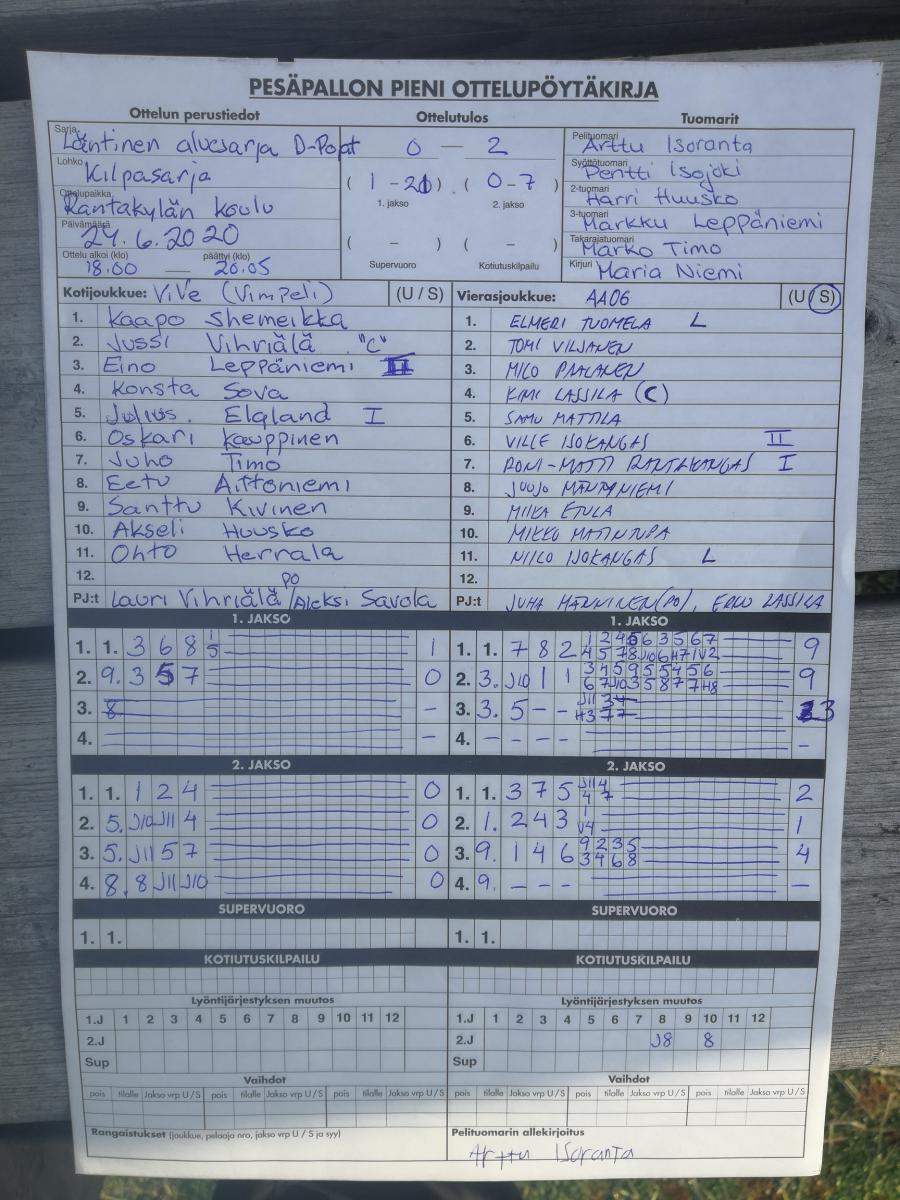 PESÄPALLON PIENI OTTELUPÖYTÄKIRJA
Ottelun perustiedot Ottelutulos Tuomarit
Sarja Läntinen aluesarja D-Pojat 0 — 2 Pelituomari Arttu Isoranta
Lohko Kilpasarja (1 - 21) (0 - 7) Syöttötuomari Pentti Isojoki
1. jakso 2. jakso
Ottelupaikka Rantakylän koulu 2-tuomari Harri Huusko
Päivämäärä 24.6.2020 ( – ) ( – ) 3-tuomari Markku Leppäniemi
Takarajatuomari Marko Timo
Ottelu alkoi (klo) 18.00 — päättyi (klo) 20.05 Supervuoro Kotiutuskilpailu Kirjuri Maria Niemi
Kotijoukkue: ViVe (Vimpeli) (U / S) Vierasjoukkue: AA06 (U / S)
1. Kaapo Shemeikka 1. ELMERI TUOMELA L
2. Jussi Vihriälä "C" 2. TOMI VILJANEN
3. Eino Leppäniemi II 3. MILO PAALANEN
4. Konsta Sova 4. KIMI LASSILA (C)
5. Julius Elgland I 5. SAMU MATTILA
6. Oskari Kauppinen 6. VILLE ISOKANGAS II
7. Juho Timo 7. RONI-MATTI RANTAKANGAS I
8. Eetu Aittoniemi 8. JUUJO MÄNTYNIEMI
9. Santtu Kivinen 9. MIIKA ETULA
10. Akseli Huusko 10. MIKKO MATINTUPA
11. Ohto Herrala 11. NIILO ISOKANGAS L
12. 12.
PO
PJ:t Lauri Vihriälä / Aleksi Savola PJ:t JUHA MÄNNINEN (PO), ERKO LASSILA
1. JAKSO 1. JAKSO
1. 1. 3 6 8 1 5 1 1. 1. 7 8 2 1 2 4 5 6 3 5 6 7 9
4 5 7 8 J10 6 H7 1 V2
2. 9. 3 5 7 0 2. 3. J10 1 1 3 4 5 9 5 5 4 5 6 9
6 7 J10 3 5 8 7 7 H8
3. 8 – 3. 3. 5 – – J11 3 4 3
H3 7 7
4. – 4. – – – – –
2. JAKSO 2. JAKSO
1. 1. 1 2 4 0 1. 1. 3 7 5 J11 4 2
4 7
2. 5. J10 J11 4 0 2. 1. 2 4 3 1 1
V4
3. 5. J11 5 7 0 3. 9. 1 4 6 9 2 3 5 4
3 4 6 8
4. 8. 8 J11 J10 0 4. 9. – – – –
SUPERVUORO SUPERVUORO
1. 1. 1. 1.
KOTIUTUSKILPAILU KOTIUTUSKILPAILU
Lyöntijärjestyksen muutos Lyöntijärjestyksen muutos
1.J 1 2 3 4 5 6 7 8 9 10 11 12 1.J 1 2 3 4 5 6 7 8 9 10 11 12
2.J 2.J J8 8
Sup Sup
Vaihdot Vaihdot
pois tilalle Jakso vrp U / S pois tilalle Jakso vrp U / S pois tilalle Jakso vrp U / S pois tilalle Jakso vrp U / S pois tilalle Jakso vrp U / S pois tilalle Jakso vrp U / S
Rangaistukset (joukkue, pelaaja nro, jakso vrp U / S ja syy) Pelituomarin allekirjoitus
Arttu Isoranta